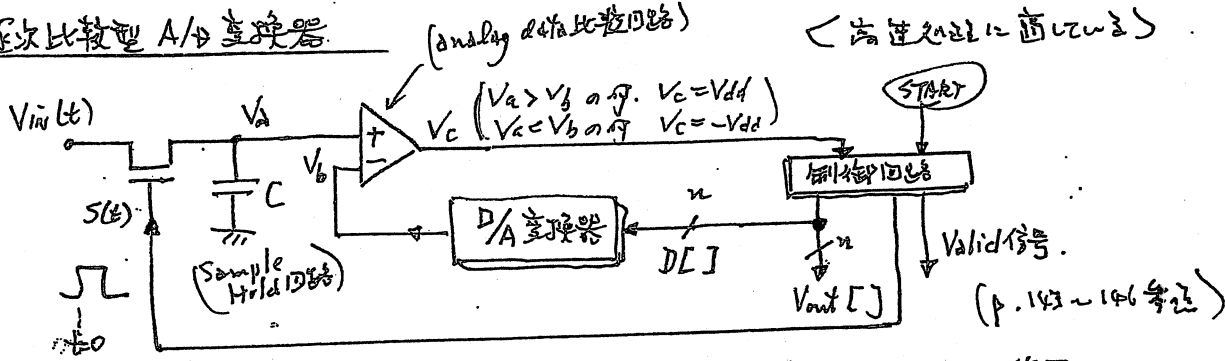 逐次比較型 A/D 変換器
(analog data比較回路)
<高速処理に適している>
Vin(t)
Va
Vb
+
-
Vc
(Va > Vb の時. Vc = Vdd
Va < Vb の時 Vc = -Vdd)
START
制御回路
S(t)
C
(Sample
Hold回路)
D/A変換器
n
D[ ]
n
Vout[ ]
Valid信号.
(p.143~146参照)
t=0